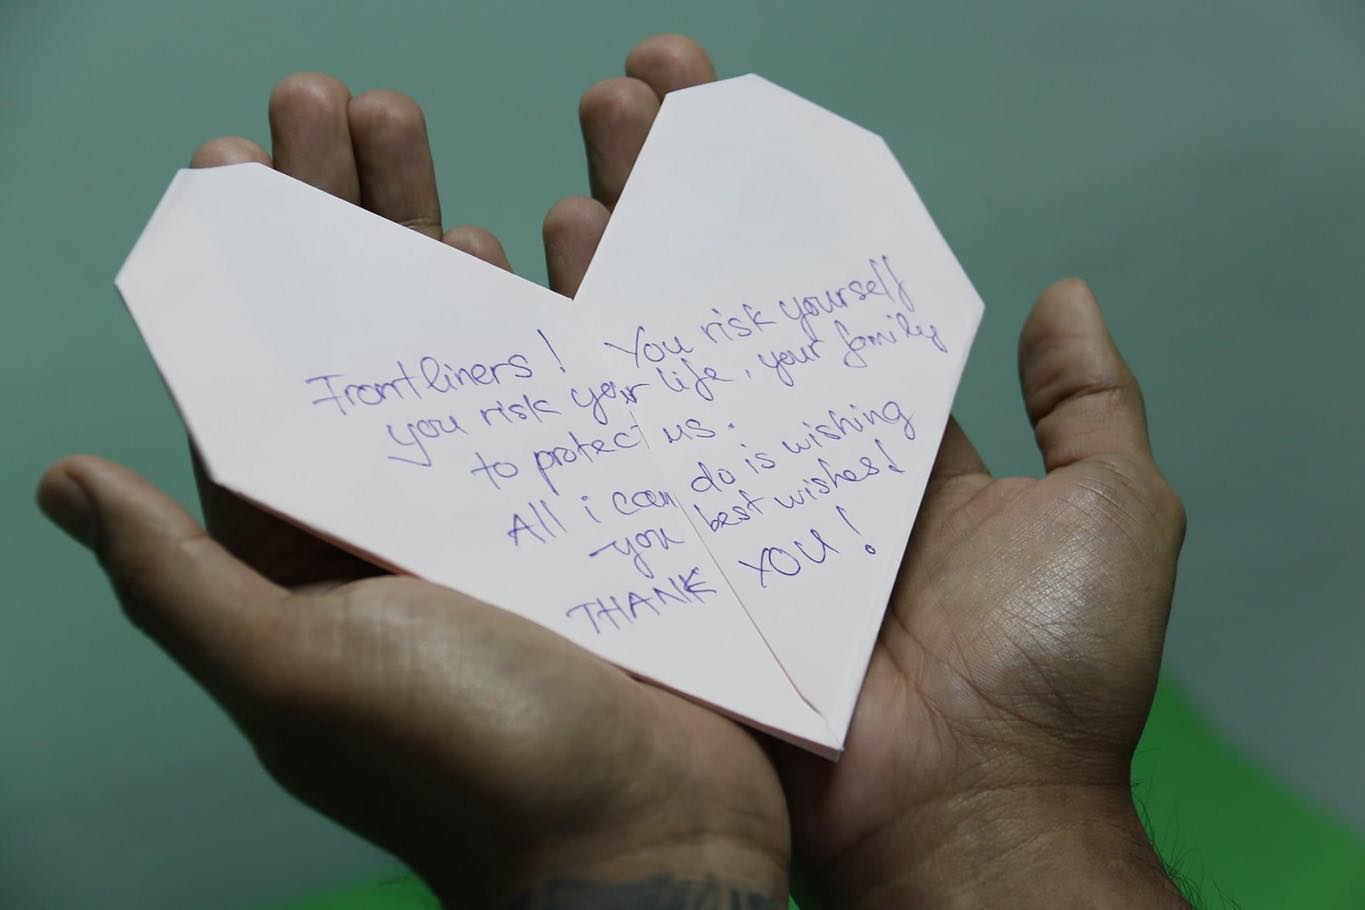 Frontliners! You risk yourself
you risk your life, your family
to protect us.
All i can do is wishing
you best wishes!
THANK YOU!